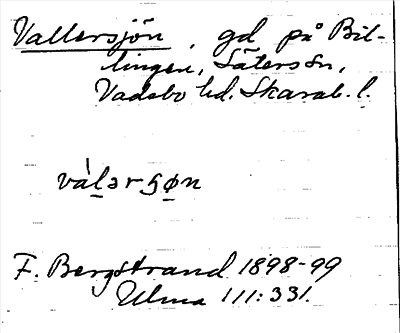 Vallersjön, gd på Bil-
lingen, Säters sn,
Vadsbo hd. Skarab. l.
vȧl̲ərsø̲n
F. Bergstrand 1898-99
Ulma 111:331.